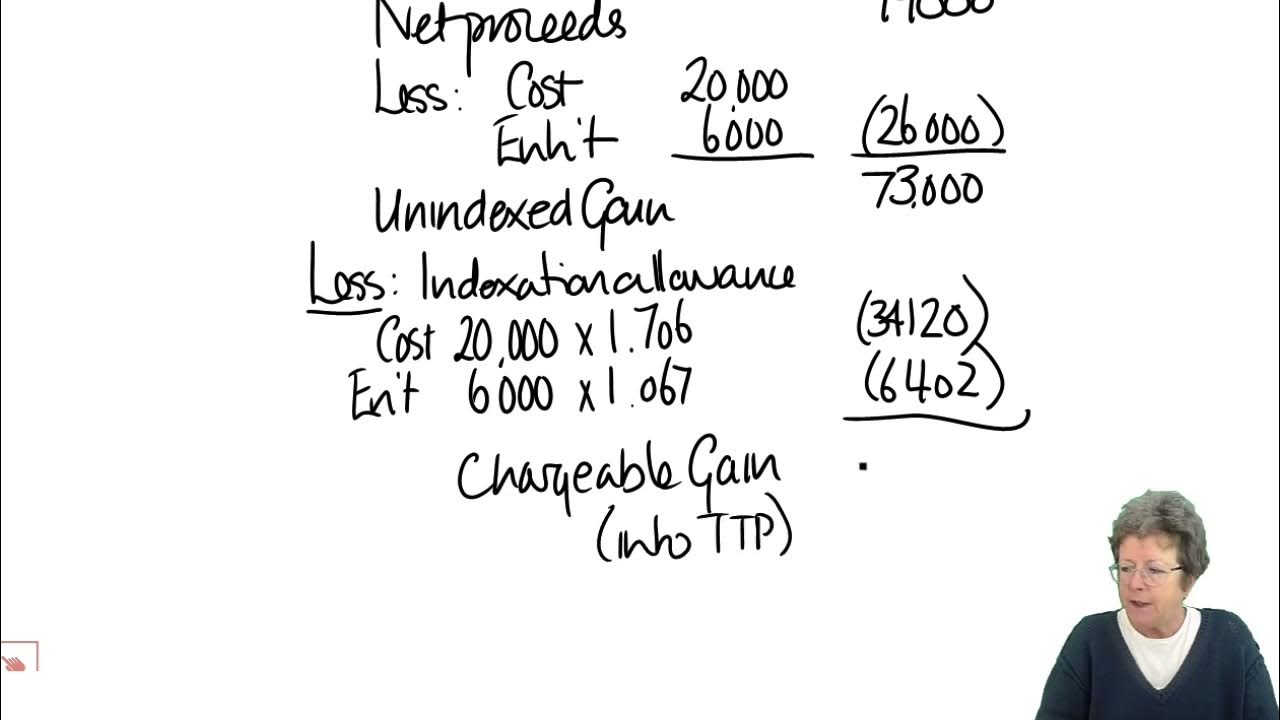 Net proceeds
Less: Cost 20,000
Enh't 6000 (26000)
73,000
Unindexed Gain
Less: Indexation allowance
Cost 20,000 x 1.706 (34120)
En't 6000 x 1.067 (6402)
Chargeable Gain
(into TTP)